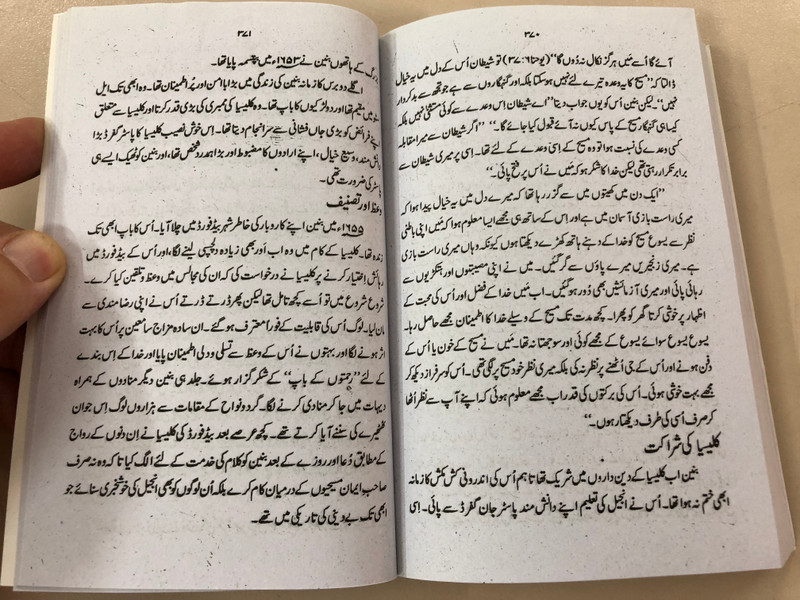 ۳۷۰
آئے گا اُسے مَیں ہرگز نکال نہ دُوں گا‘‘(یوحنا۳۷:۶) تو شیطان اُس کے دل میں یہ خیال
ڈالتا کہ ’’مسیح کا یہ وعدہ تیرے لئے نہیں ہوسکتا بلکہ اور گنہگاروں سے ہے جو تجھ سے بدکردار
نہیں‘‘۔ لیکن بنین اُس کو یوں جواب دیتا ’’اے شیطان اِس وعدے سے کوئی مستثنیٰ نہیں بلکہ
کیسا ہی گنہگار مسیح کے پاس کیوں نہ آئے قبول کیا جائے گا۔‘‘ ’’اگر شیطان سے میرا مقابلہ
کسی وعدے کی نسبت ہوا تو وہ مسیح کے اِسی وعدے کے لئے تھا۔ اِسی پر میری شیطان سے
برابر تکرار رہتی تھی لیکن خدا کا شکر ہو کہ مَیں نے اُس پر فتح پائی‘‘۔
’’ایک دن میں کھیتوں میں سے گزر رہا تھا کہ میرے دل میں یہ خیال پیدا ہوا کہ
میری راست بازی آسمان میں ہے اور اِس کے ساتھ ہی مجھے ایسا معلوم ہوا کہ مَیں اپنی باطنی
نظر سے یسوع مسیح کو خدا کے دہنے ہاتھ کھڑے دیکھتا ہوں کیونکہ وہاں میری راست بازی
ہے۔ میری زنجیریں میرے پاؤں سے گر گئیں۔ میں نے اپنی مصیبتوں اور ہتکڑیوں سے
رہائی پائی اور میری آزمائشیں بھی دُور ہوگئیں۔ اب مَیں خدا کے فضل اور اُس کی محبت کے
اظہار پر خوشی کرتا گھر کو پھرا۔ کچھ مدت تک مسیح کے وسیلے خدا کا اطمینان مجھے حاصل رہا۔
یسوع یسوع سوائے یسوع کے مجھے کوئی اور سوجھتا نہ تھا۔ مَیں نے مسیح کے خون یا اُس کے
دفن ہونے اور اُس کے جی اُٹھنے پر نظر نہ کی بلکہ میری نظر خود مسیح پر لگی تھی۔ اُس کو سرفراز دیکھ کر
مجھے بہت خوشی ہوئی۔ اُس کی برکتوں کی قدر اب مجھے معلوم ہوئی کہ اپنے آپ سے نظر اُٹھا
کر صرف اُسی کی طرف دیکھتا رہوں۔‘‘
کلیسیا کی شراکت
بنین اب کلیسیا کے دین داروں میں شریک تھا تاہم اُس کی اندرونی کش مکش کا زمانہ
ابھی ختم نہ ہوا تھا۔ اُس نے انجیل کی تعلیم اپنے دانش مند پاسٹر جان گفرڈ سے پائی۔ اِسی
۳۷۱
بزرگ کے ہاتھوں بنین نے ۱۶۵۳ء میں بپتسمہ پایا تھا۔
اگلے دو برس کا زمانہ بنین کی زندگی میں بڑا با امن اور پُر اطمینان تھا۔ وہ ابھی تک ایل
میں مقیم تھا اور دو لڑکیوں کا باپ تھا۔ وہ کلیسیا کی ممبری کی بڑی قدر کرتا اور کلیسیا سے متعلق
اپنے فرائض کو بڑی جاں فشانی سے سرانجام دیتا تھا۔ اِس خوش نصیب کلیسیا کا پاسٹر گفرڈ بڑا
دانش مند، وسیع خیال، اپنے ارادوں کا مضبوط اور بڑا ہمدرد شخص تھا، اور بنین کو ٹھیک ایسے ہی
پاسٹر کی ضرورت تھی۔
وعظ اور تصنیف
۱۶۵۵ء میں بنین اپنے کاروبار کی خاطر شہر بیڈفورڈ میں چلا آیا۔ اُس کا باپ ابھی تک
زندہ تھا۔ کلیسیا کے کام میں وہ اب اَور بھی زیادہ دلچسپی لینے لگا، اور اُس کے بیڈفورڈ میں
رہائش اختیار کرنے پر کلیسیا نے درخواست کی کہ ان کی مجالس میں وعظ و تلقین کیا کرے۔
شروع شروع میں تو اُسے کچھ تامل تھا لیکن پھر ڈرتے ڈرتے اُس نے اپنی رضامندی سے
مان لیا۔ لوگ اُس کی قابلیت کے فوراً معترف ہوگئے۔ ان سادہ مزاج سامعین پر اُس کا بہت
اثر ہونے لگا اور بہتوں نے اُس کے وعظ سے تسلی و دلی اطمینان پایا اور خدا کے اِس بندے
کے لئے ’’رحمتوں کے باپ‘‘ کے شکرگزار ہوئے۔ جلد ہی بنین دیگر منادوں کے ہمراہ
دیہات میں جا کر منادی کرنے لگا۔ گردونواح کے مقامات سے ہزاروں لوگ اِس جوان
ٹھٹھیرے کی سننے آیا کرتے تھے۔ کچھ عرصے بعد بیڈفورڈ کی کلیسیا نے اِن دنوں کے رواج
کے مطابق دُعا اور روزے کے بعد بنین کو کلام کی خدمت کے لئے الگ کیا تاکہ وہ نہ صرف
صاحبِ ایمان مسیحیوں کے درمیان کام کرے بلکہ اُن لوگوں کو بھی انجیل کی خوشخبری سنائے جو
ابھی تک بے دینی کی تاریکی میں تھے۔